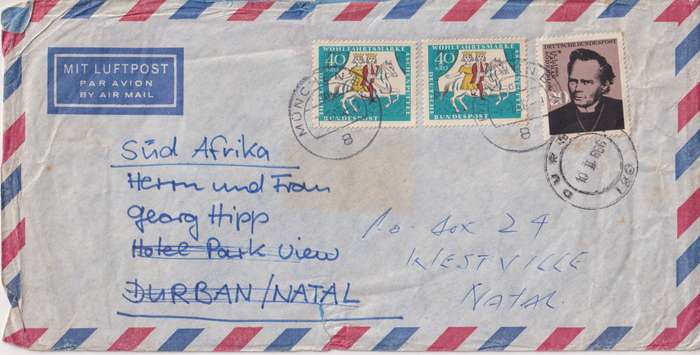 MIT LUFTPOST
PAR AVION
BY AIR MAIL
40
+20
WOHLFAHRTSMARKE
DEUTSCHE
BUNDESPOST
40
+20
WOHLFAHRTSMARKE
DEUTSCHE
BUNDESPOST
DEUTSCHE BUNDESPOST
MÜNC
8
8
Süd Afrika
Herrn und Frau
Georg Hipp
Hotel Park View
DURBAN/NATAL
P.O. Box 24
WESTVILLE
NATAL.